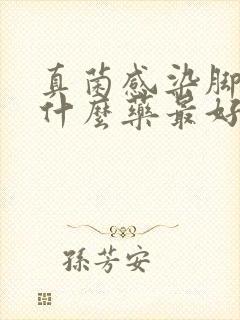 真菌感染脚
什麼藥最好
孫芳安